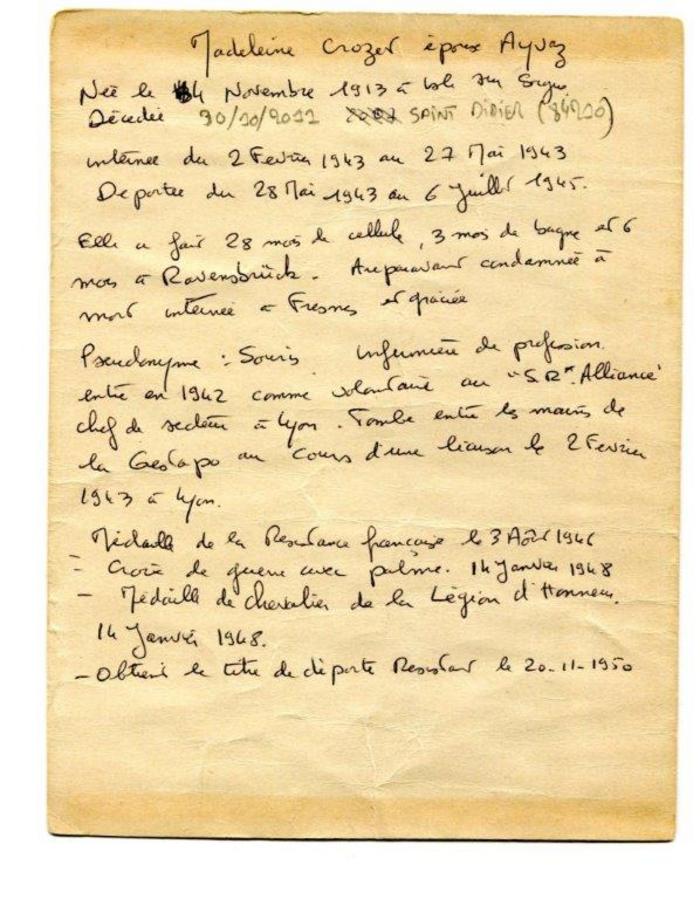 Madeleine Crozet épouse Ayvaz
Née le 4 Novembre 1913 à Isle sur Sorgue
Décédée 30/10/2011 SAINT DIDIER (84210)
internée du 2 Fevrier 1943 au 27 Mai 1943
Deportée du 28 Mai 1943 au 6 Juillet 1945.
Elle a fait 28 mois de cellule, 3 mois de bagne et 6
mois à Ravensbrück. Auparavant condamnée à
mort internée à Fresnes et graciée
Pseudonyme : Souris infirmière de profession.
entre en 1942 comme volontaire au "S.R". Alliance
chef de secteur à Lyon. Tombe entre les mains de
la Gestapo au cours d'une liaison le 2 Fevrier
1943 à Lyon.
Médaille de la Resistance française le 3 Août 1946
- Croix de guerre avec palme. 14 Janvier 1948
- Médaille de chevalier de la Légion d'Honneur.
14 Janvier 1948.
- Obtient le titre de déporté Resistant le 20-11-1950